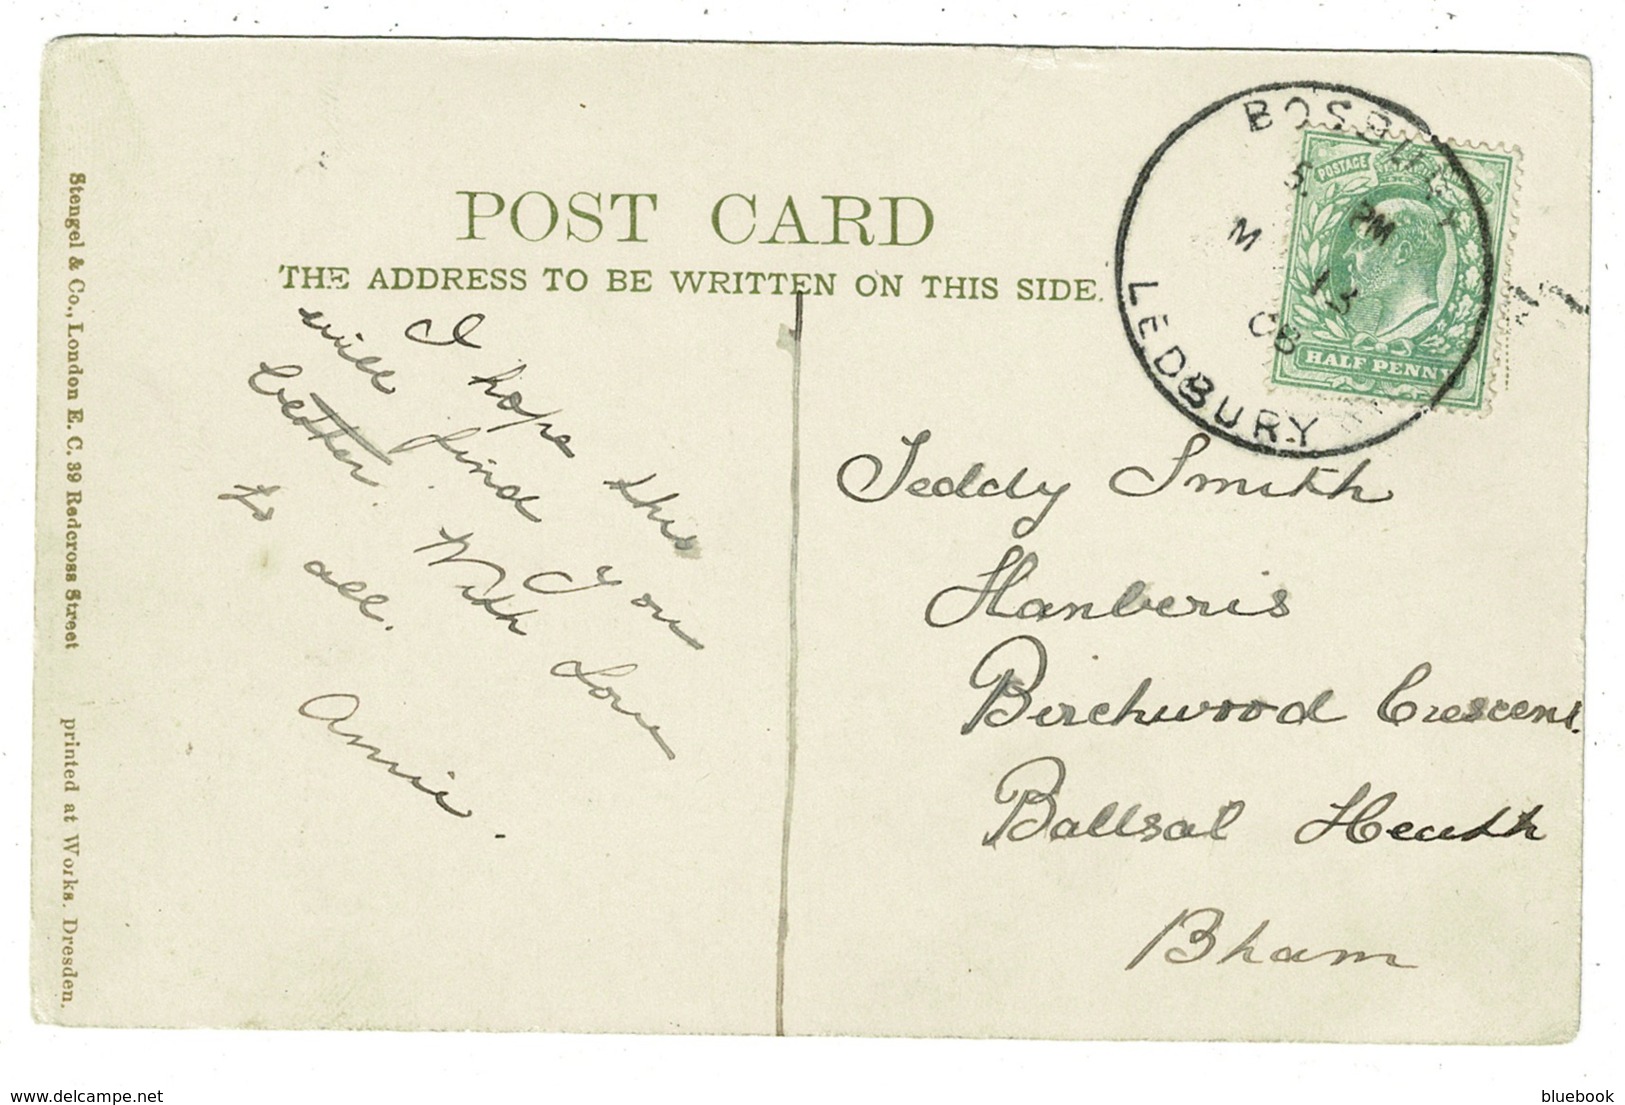 POST CARD
THE ADDRESS TO BE WRITTEN ON THIS SIDE.
Stengel & Co., London E. C. 39 Redcross Street printed at Works. Dresden.
I hope this
will find you
better. With Love
to all.
Annie.
BOSBURY
5 PM
M 13
08
LEDBURY
POSTAGE
HALF PENNY
Teddy Smith
Hanberis
Birchwood Crescent.
Ballsal Heath
Bham
delcampe.net
bluebook